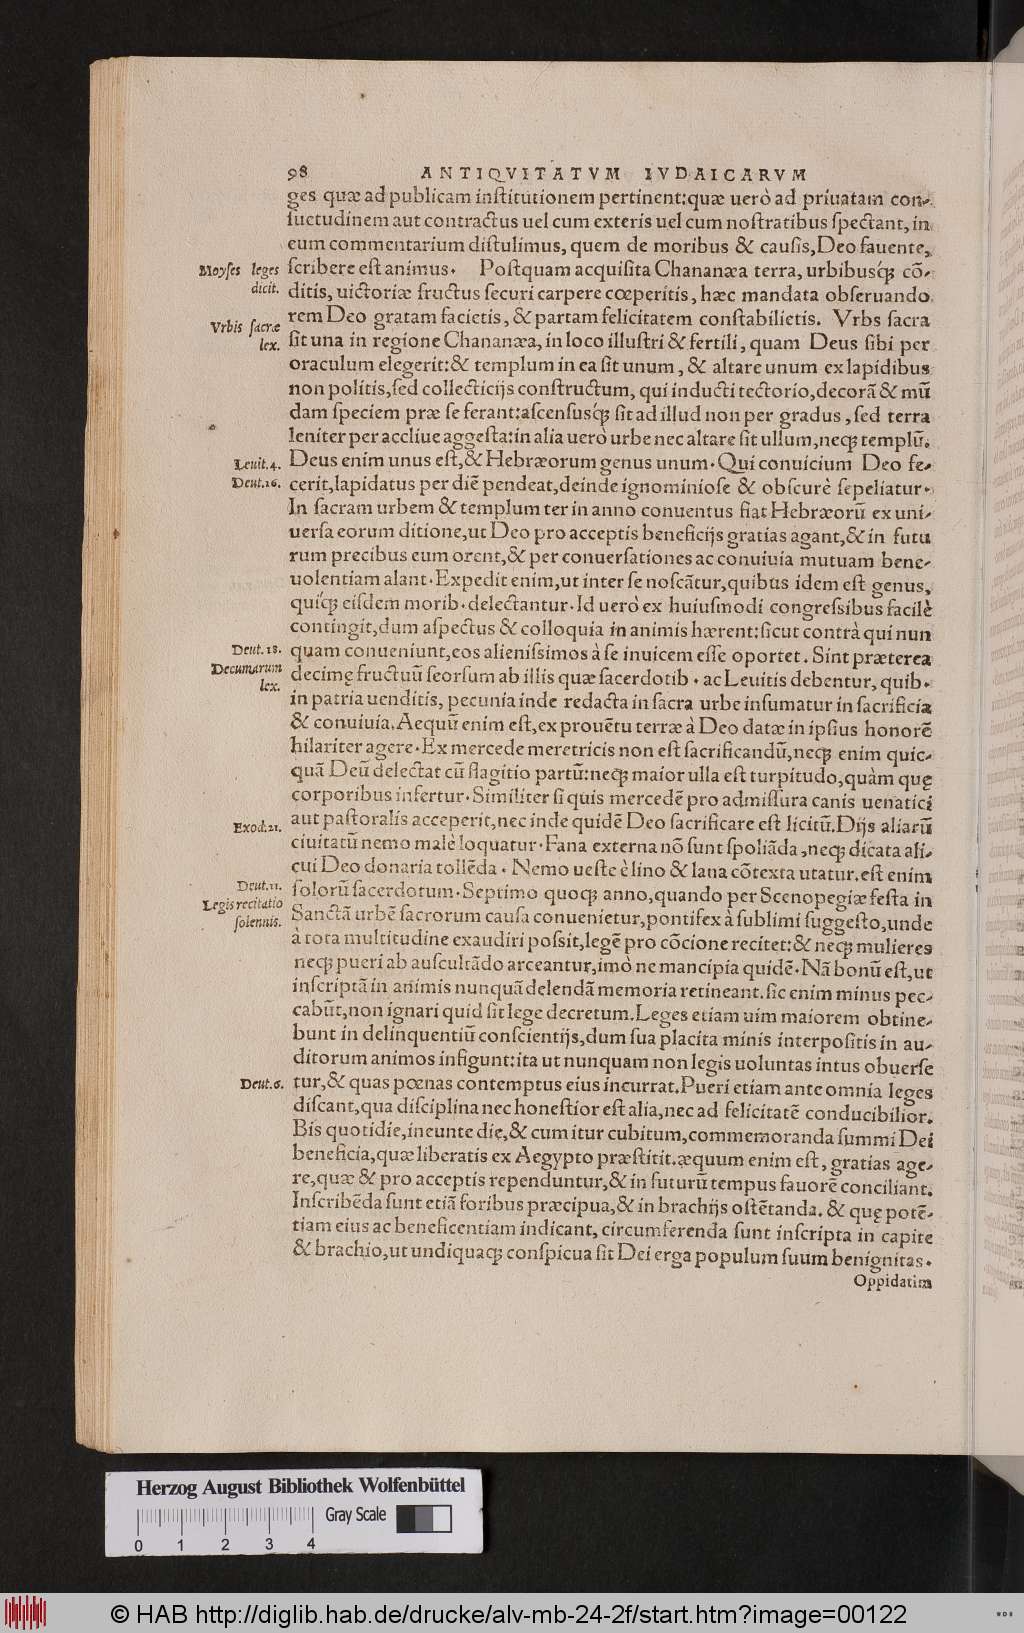 98 ANTIQVITATVM IVDAICARVM
ges quæ ad publicam inſtitutionem pertinent: quæ uerò ad priuatam con-
ſuetudinem aut contractus uel cum exteris uel cum noſtratibus ſpectant, in
eum commentarium diſtulimus, quem de moribus & cauſis, Deo fauente,
Moyſes leges
dicit.
ſcribere eſt animus. Poſtquam acquiſita Chananæa terra, urbibusq́ꝫ cõ-
ditis, uictoriæ fructus ſecuri carpere cœperitis, hæc mandata obſeruando
Vrbis ſacræ
lex.
rem Deo gratam facietis, & partam felicitatem conſtabilietis. Vrbs ſacra
ſit una in regione Chananæa, in loco illuſtri & fertili, quam Deus ſibi per
oraculum elegerit: & templum in ea ſit unum, & altare unum ex lapidibus
non politis, ſed collecticijs conſtructum, qui inducti tectorio, decorã & mũ
dam ſpeciem præ ſe ferant: aſcenſusq́ꝫ ſit ad illud non per gradus, ſed terra
leniter per accliue aggeſta: in alia uerò urbe nec altare ſit ullum, neqꝫ templũ.
Leuit. 4.
Deut. 16.
Deus enim unus eſt, & Hebræorum genus unum. Qui conuicium Deo fe-
cerit, lapidatus per diẽ pendeat, deinde ignominioſe & obſcurè ſepeliatur.
In ſacram urbem & templum ter in anno conuentus fiat Hebræorũ ex uni-
uerſa eorum ditione, ut Deo pro acceptis beneficijs gratias agant, & in futu
rum precibus eum orent, & per conuerſationes ac conuiuia mutuam bene-
uolentiam alant. Expedit enim, ut inter ſe noſcãtur, quibus idem eſt genus,
quiq́ꝫ eiſdem morib. delectantur. Id uerò ex huiuſmodi congreſsibus facilè
contingit, dum aſpectus & colloquia in animis hærent: ſicut contrà qui nun
Deut. 18.
Decumarum
lex.
quam conueniunt, eos alieniſsimos à ſe inuicem eſſe oportet. Sint præterea
decimę fructuũ ſeorſum ab illis quæ ſacerdotib. ac Leuitis debentur, quib.
in patria uenditis, pecunia inde redacta in ſacra urbe inſumatur in ſacrificia
& conuiuia. Aequũ enim eſt, ex prouẽtu terræ à Deo datæ in ipſius honorẽ
hilariter agere. Ex mercede meretricis non eſt ſacrificandũ, neqꝫ enim quic-
quã Deũ delectat cũ flagitio partũ: neqꝫ maior ulla eſt turpitudo, quàm quę
corporibus infertur. Similiter ſi quis mercedẽ pro admiſſura canis uenatici
Exod. 21.
aut paſtoralis acceperit, nec inde quidẽ Deo ſacrificare eſt licitũ. Dijs aliarũ
ciuitatũ nemo malè loquatur. Fana externa nõ ſunt ſpoliãda, neqꝫ dicata ali-
cui Deo donaria tollẽda. Nemo ueſte è lino & lana cõtexta utatur. eſt enim
Deut. 11.
Legis recitatio
ſolennis.
ſolorũ ſacerdotum. Septimo quoqꝫ anno, quando per Scenopegiæ feſta in
Sanctã urbẽ ſacrorum cauſa conuenietur, pontifex à ſublimi ſuggeſto, unde
à tota multitudine exaudiri poſsit, legẽ pro cõcione recitet: & neqꝫ mulieres
neqꝫ pueri ab auſcultãdo arceantur, imò ne mancipia quidẽ. Nã bonũ eſt, ut
inſcriptã in animis nunquã delendã memoria retineant. ſic enim minus pec-
cabũt, non ignari quid ſit lege decretum. Leges etiam uim maiorem obtine-
bunt in delinquentiũ conſcientijs, dum ſua placita minis interpoſitis in au-
ditorum animos infigunt: ita ut nunquam non legis uoluntas intus obuerſe
Deut. 6.
tur, & quas pœnas contemptus eius incurrat. Pueri etiam ante omnia leges
diſcant, qua diſciplina nec honeſtior eſt alia, nec ad felicitatẽ conducibilior.
Bis quotidie, ineunte die, & cum itur cubitum, commemoranda ſummi Dei
beneficia, quæ liberatis ex Aegypto præſtitit. æquum enim eſt, gratias age-
re, quæ & pro acceptis rependuntur, & in futurũ tempus fauorẽ conciliant.
Inſcribẽda ſunt etiã foribus præcipua, & in brachijs oſtẽtanda. & quę potẽ-
tiam eius ac beneficentiam indicant, circumferenda ſunt inſcripta in capite
& brachio, ut undiquaqꝫ conſpicua ſit Dei erga populum ſuum benignitas.
Oppidatim
Herzog August Bibliothek Wolfenbüttel
Gray Scale
0 1 2 3 4
© HAB http://diglib.hab.de/drucke/alv-mb-24-2f/start.htm?image=00122